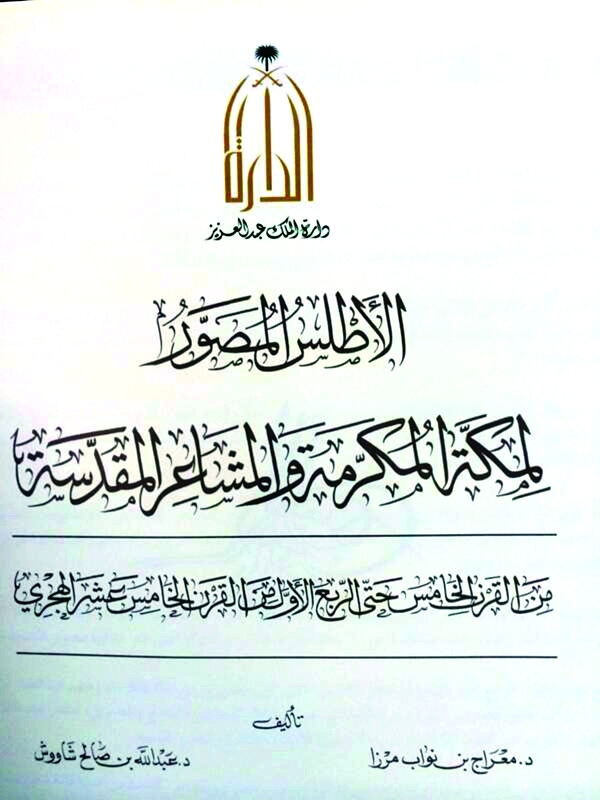 الدارة
دارة الملك عبدالعزيز
الأطلس المصوَّر
لمكَّة المكرَّمة والمشاعر المقدَّسة
من القرن الخامس حتَّى الرَّبع الأوَّل من القرن الخامس عشر الهجري
تأليف
د. معراج بن نواب مرزا
د. عبدالله بن صالح شاووش